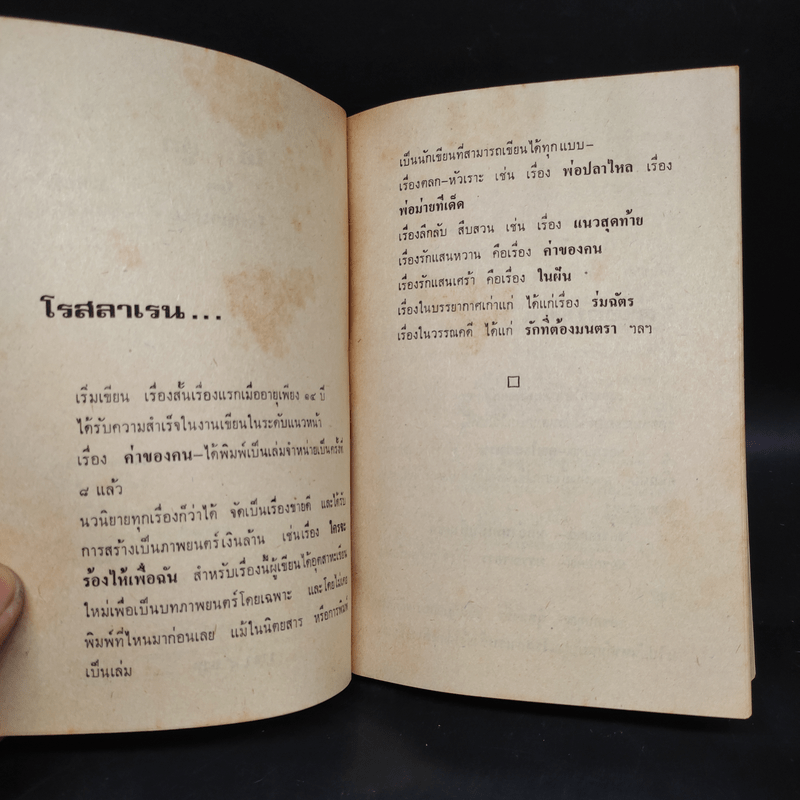 โรสลาเรน...
เริ่มเขียน เรื่องสั้นเรื่องแรกเมื่ออายุเพียง ๑๔ ปี
ได้รับความสำเร็จในงานเขียนในระดับแนวหน้า
เรื่อง ค่าของคน–ได้พิมพ์เป็นเล่มจำหน่ายเป็นครั้งที่
๘ แล้ว
นวนิยายทุกเรื่องก็ว่าได้ จัดเป็นเรื่องขายดี และได้รับ
การสร้างเป็นภาพยนตร์เงินล้าน เช่นเรื่อง ใครจะ
ร้องไห้เพื่อฉัน สำหรับเรื่องนี้ผู้เขียนได้อุตสาหะเขียน
ใหม่เพื่อเป็นบทภาพยนตร์โดยเฉพาะ และโดยไม่เคย
พิมพ์ที่ไหนมาก่อนเลย แม้ในนิตยสาร หรือการพิมพ์
เป็นเล่ม
เป็นนักเขียนที่สามารถเขียนได้ทุกแบบ–
เรื่องตลก–หัวเราะ เช่น เรื่อง พ่อปลาไหล เรื่อง
พ่อม่ายทีเด็ด
เรื่องลึกลับ สืบสวน เช่น เรื่อง แนวสุดท้าย
เรื่องรักแสนหวาน คือเรื่อง ค่าของคน
เรื่องรักแสนเศร้า คือเรื่อง ในฝัน
เรื่องในบรรยากาศเก่าแก่ ได้แก่เรื่อง ร่มฉัตร
เรื่องในวรรณคดี ได้แก่ รักที่ต้องมนตรา ฯลฯ